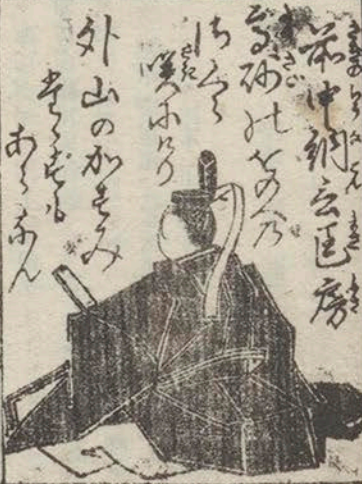 前中納言匡房
高砂のをのへの
さくら
咲にけり
外山のかすみ
たゝずも
あらなん